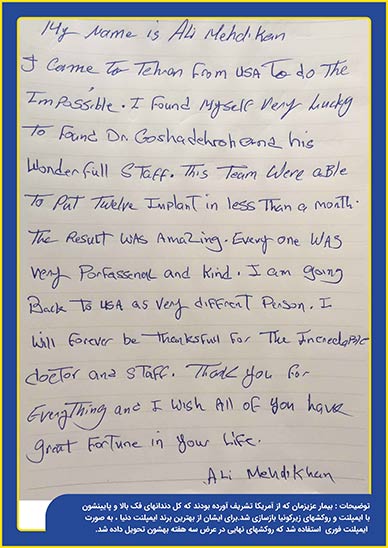 My Name is Ali Mehdikhan
I Come to Tehran From USA To do The
Impossible. I Found Myself Very Lucky
To Found Dr. Goshadehroh and his
Wonderfull Staff. This Team Were able
To Put Twelve Implant in less Than a month.
The Result WAS Amazing. Every one WAS
very Porfassenal and Kind. I am going
Back To USA as very different Person. I
Will forever be thanksfull For The Incredable
doctor and Staff. Thank you For
Everything and I Wish All of you have
great Fortune in your Life.
Ali Mehdikhan
توضیحات : بیمار عزیزمان که از آمریکا تشریف آورده بودند که کل دندانهای فک بالا و پایینشون
با ایمپلنت و روکشهای زیرکونیا بازسازی شد.برای ایشان از بهترین برند ایمپلنت دنیا ، به صورت
ایمپلنت فوری استفاده شد که روکشهای نهایی در عرض سه هفته بهشون تحویل داده شد.